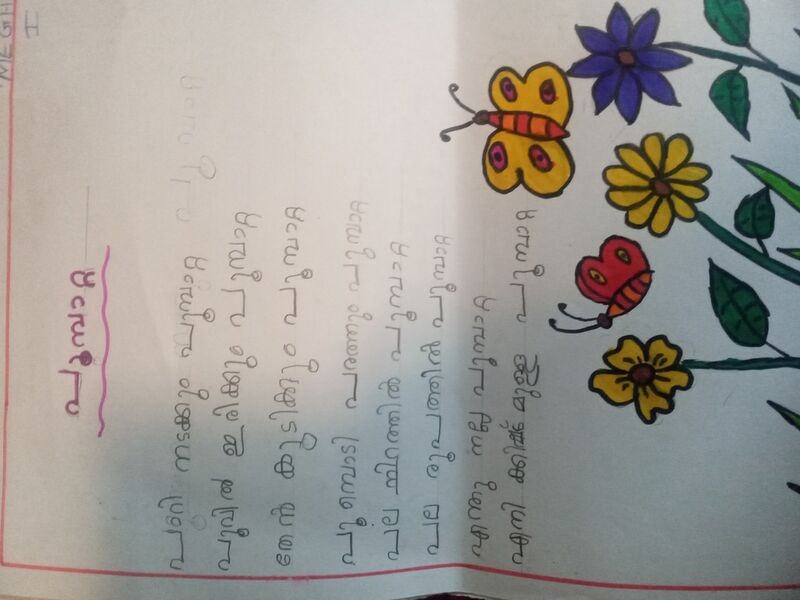 I
പൂമ്പാറ്റ
പാറി നടക്കും പൂമ്പാറ്റ
പൂവിൽ ഇരിക്കും പൂമ്പാറ്റ
തേൻ കുടിക്കും പൂമ്പാറ്റ
പരത്തും പൂമ്പാറ്റ
പല നിറത്തിൽ പൂമ്പാറ്റ
പല രൂപത്തിൽ പൂമ്പാറ്റ
നല്ല പൂമ്പാറ്റ
എനി ക്കിഷ്ടമുള്ള പൂമ്പാറ്റ